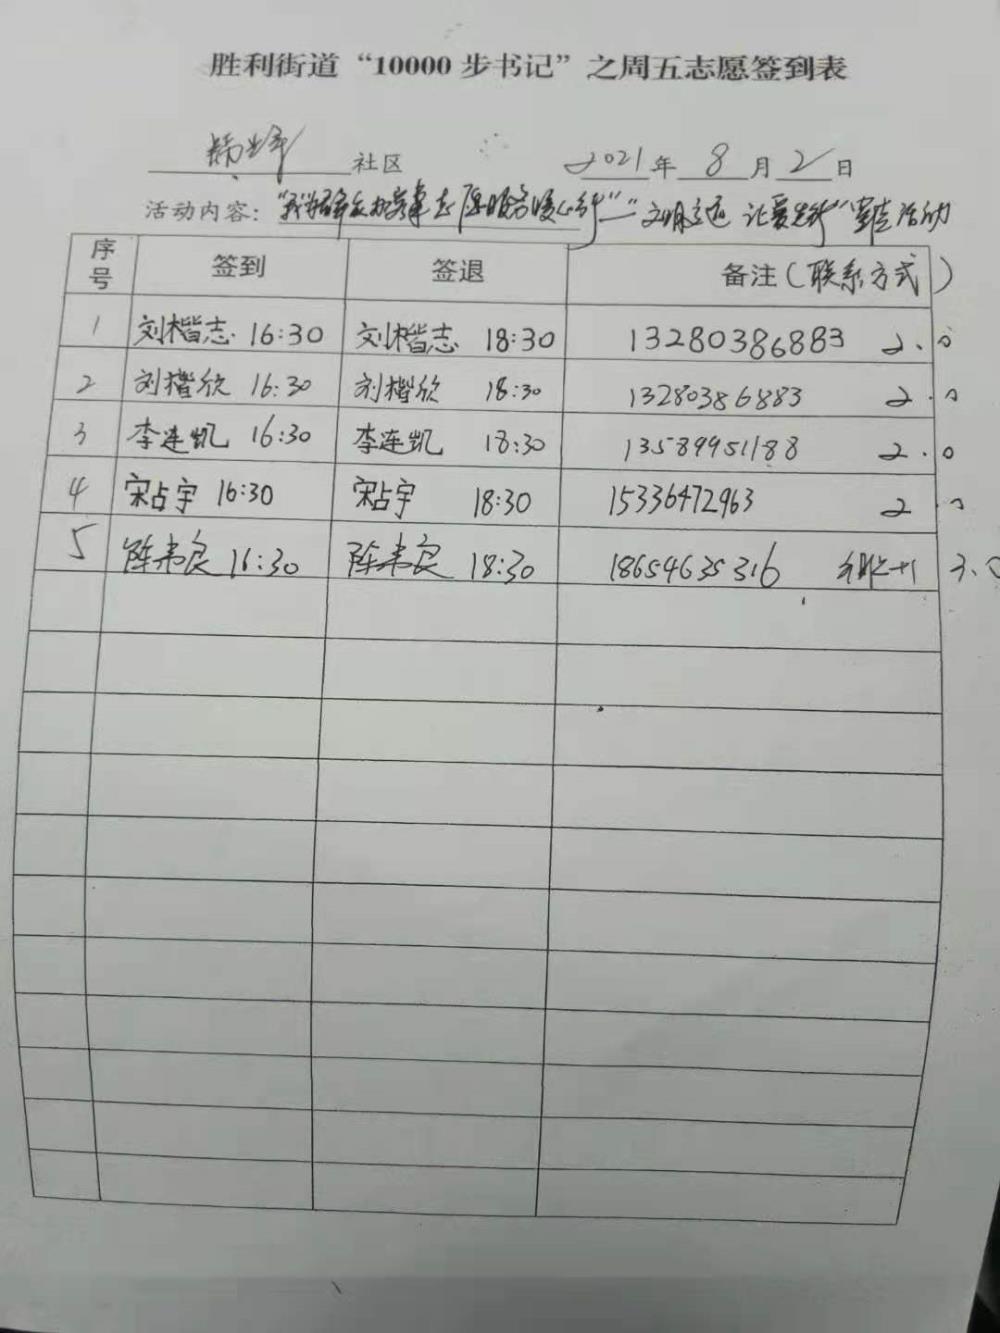 胜利街道“10000步书记”之周五志愿签到表
社区 2021年8月2日
活动内容:“我为群众办实事志愿服务暖心行”—“文明交通 让爱先行”宣传活动
序号 签到 签退 备注(联系方式)
1 刘楷志 16:30 刘楷志 18:30 13280386883 2.0
2 刘楷欣 16:30 刘楷欣 18:30 13280386883 2.0
3 李连凯 16:30 李连凯 18:30 13589951188 2.0
4 宋占宇 16:30 宋占宇 18:30 15336472963 2.0
5 陈韦良 16:30 陈韦良 18:30 18654635316 +1 3.0